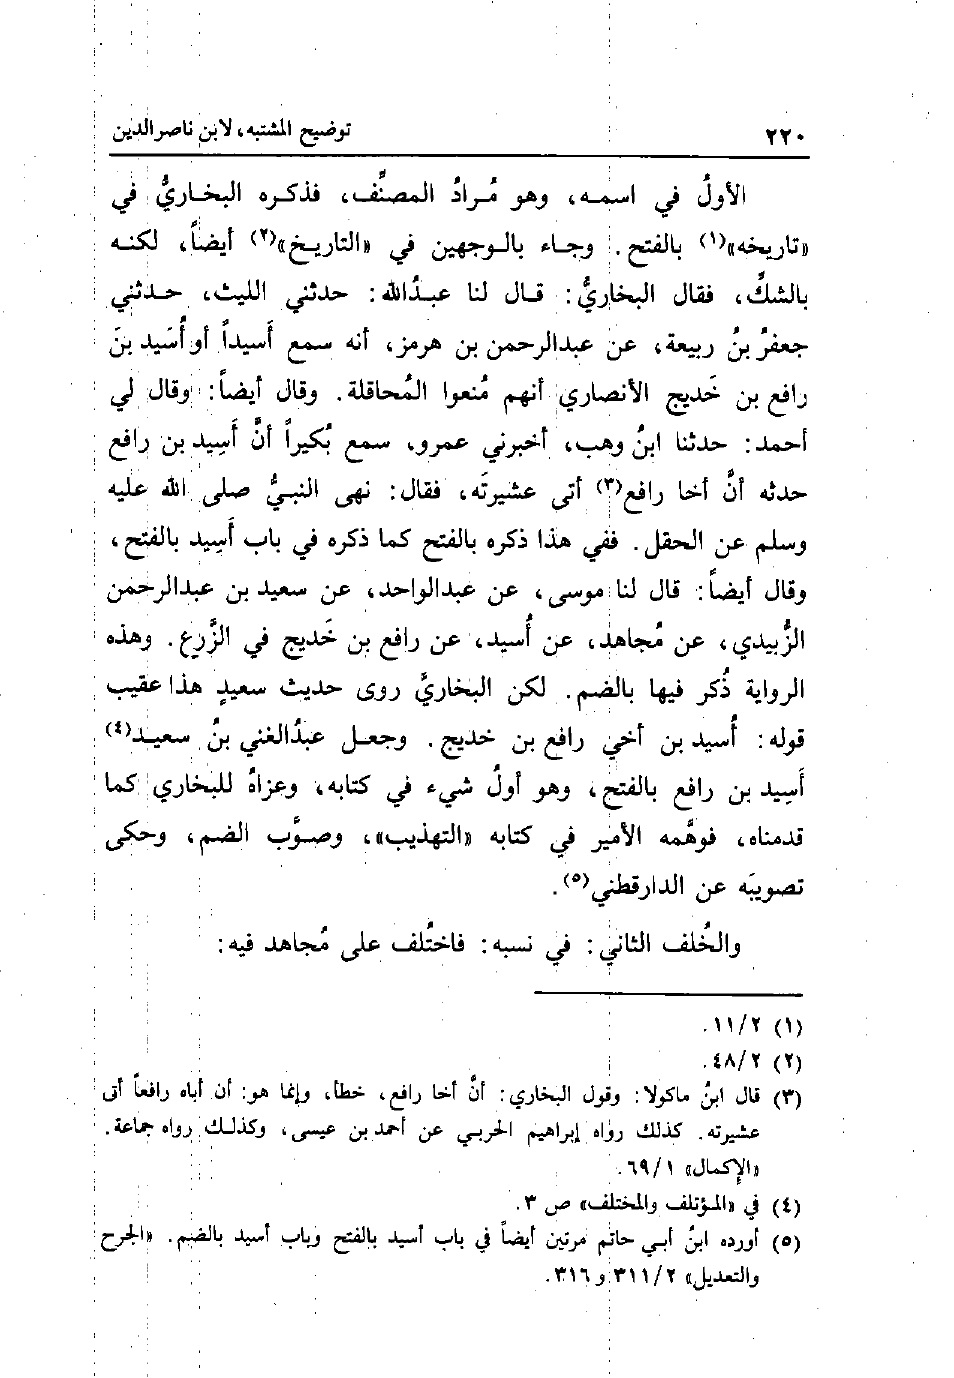 ٢٢٠ توضيح المشتبه، لابن ناصرالدين
الأولُ في اسمـه، وهو مُـرادُ المصنِّف، فذكـره البخـاريُّ في
«تاريخه»(١) بالفتح. وجـاء بالـوجهين في «التاريـخ»(٢) أيضاً، لكنـه
بالشكِّ، فقال البخاريُّ: قـال لنا عبـدُالله: حدثني الليث، حـدثني
جعفرُ بنُ ربيعة، عن عبدالرحمن بن هرمز، أنه سمع أَسيداً أو أُسَيد بنَ
رافع بن خَديج الأنصاري أنهم مُنعوا المُحاقلة. وقال أيضاً: وقال لي
أحمد: حدثنا ابنُ وهب، أخبرني عمرو، سمع بُكيراً أنَّ أَسِيد بن رافع
حدثه أنَّ أخا رافع(٣) أتى عشيرتَه، فقال: نهى النبيُّ صلى الله عليه
وسلم عن الحقل. ففي هذا ذكره بالفتح كما ذكره في باب أَسِيد بالفتح،
وقال أيضاً: قال لنا موسى، عن عبدالواحد، عن سعيد بن عبدالرحمن
الزُّبيدي، عن مُجاهد، عن أُسيد، عن رافع بن خَديج في الزَّرع. وهذه
الرواية ذُكر فيها بالضم. لكن البخاريَّ روى حديث سعيدٍ هذا عقيب
قوله: أُسيد بن أخي رافع بن خديج. وجعـل عبدُالغني بنُ سعيـد(٤)
أَسِيد بن رافع بالفتح، وهو أولُ شيء في كتابه، وعزاهُ للبخاري كما
قدمناه، فوهَّمه الأمير في كتابه «التهذيب»، وصوَّب الضم، وحكى
تصويبَه عن الدارقطني(٥).
والخُلف الثاني: في نسبه: فاختُلف على مُجاهد فيه:
(١) ١١/٢.
(٢) ٤٨/٢.
(٣) قال ابنُ ماكولا: وقول البخاري: أنَّ أخا رافع، خطأ، وإنما هو: أن أباه رافعاً أتى
عشيرته. كذلك رواه إبراهيم الحربي عن أحمد بن عيسى، وكذلـك رواه جماعة.
«الإكمال» ٦٩/١.
(٤) في «المؤتلف والمختلف» ص ٣.
(٥) أورده ابنُ أبـي حاتم مرتين أيضاً في باب أسيد بالفتح وباب أسيد بالضم. «الجرح
والتعديل» ٣١١/٢ و ٣١٦.